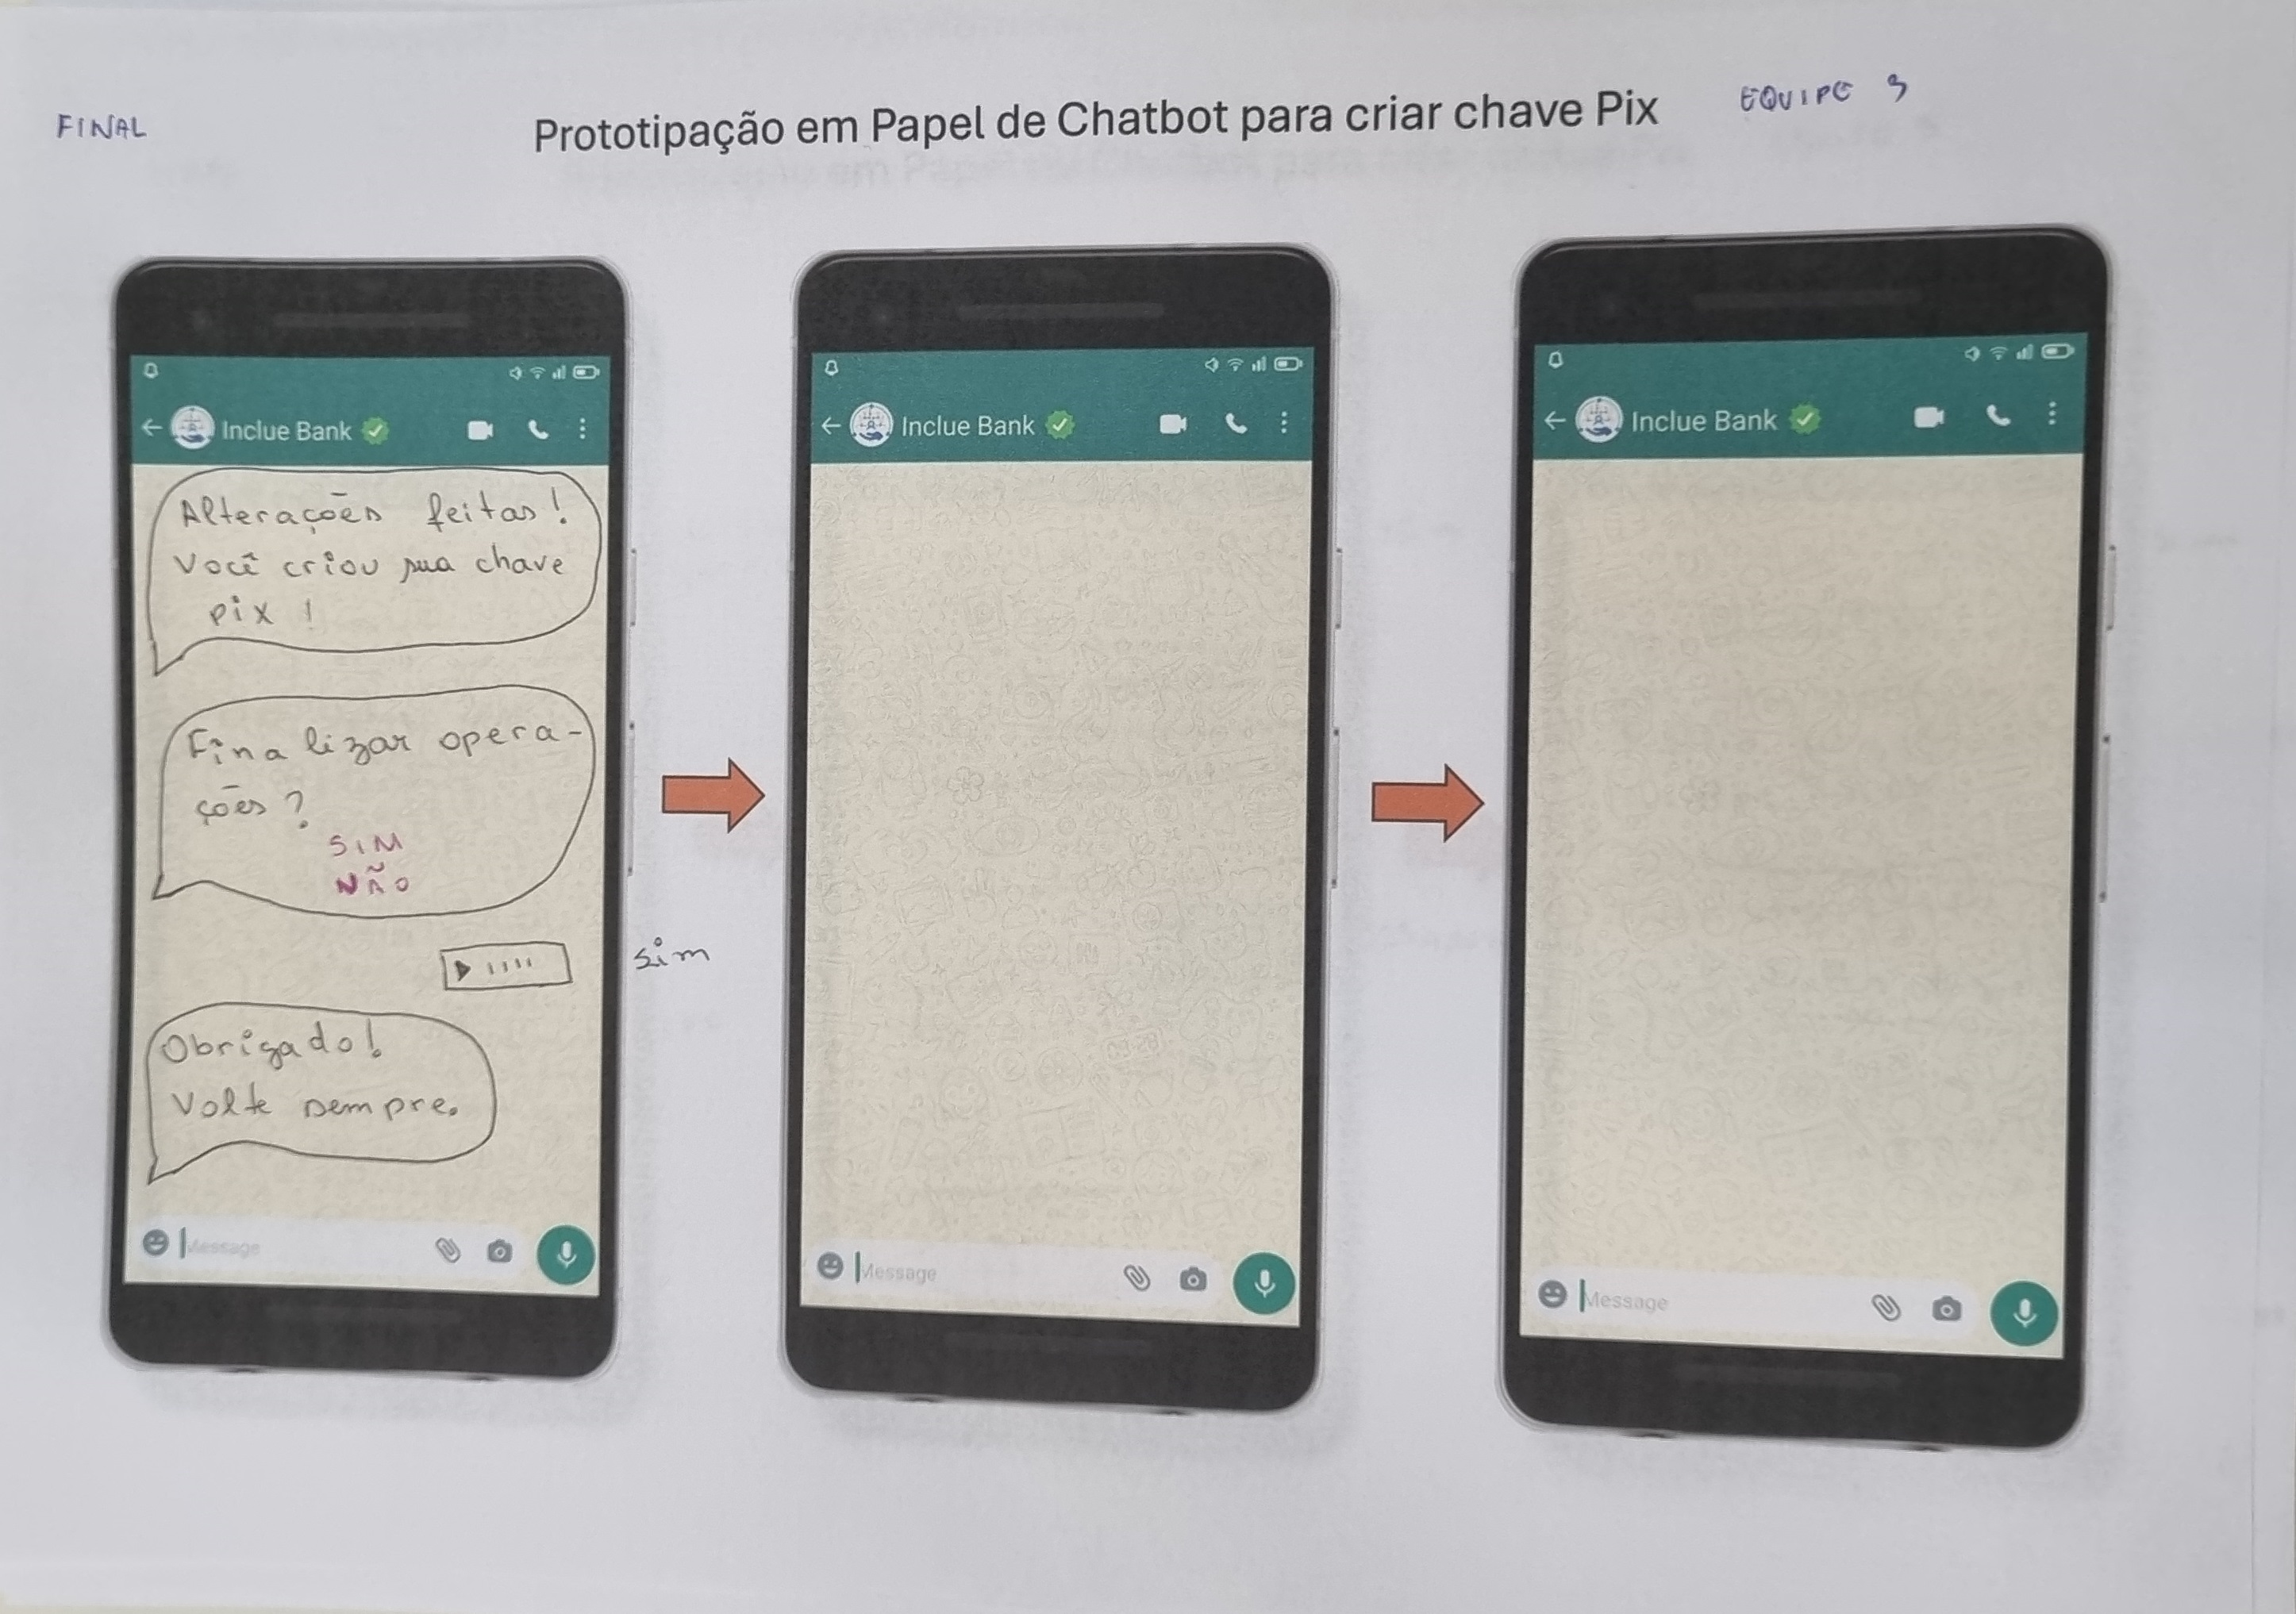 FINAL
Prototipação em Papel de Chatbot para criar chave Pix
EQUIPE 3
Inclue Bank
Alterações feitas!
Você criou sua chave
pix!
Finalizar opera-
ções?
SIM
NÃO
sim
Obrigado!
Volte sempre.
Message
Inclue Bank
Message
Inclue Bank
Message